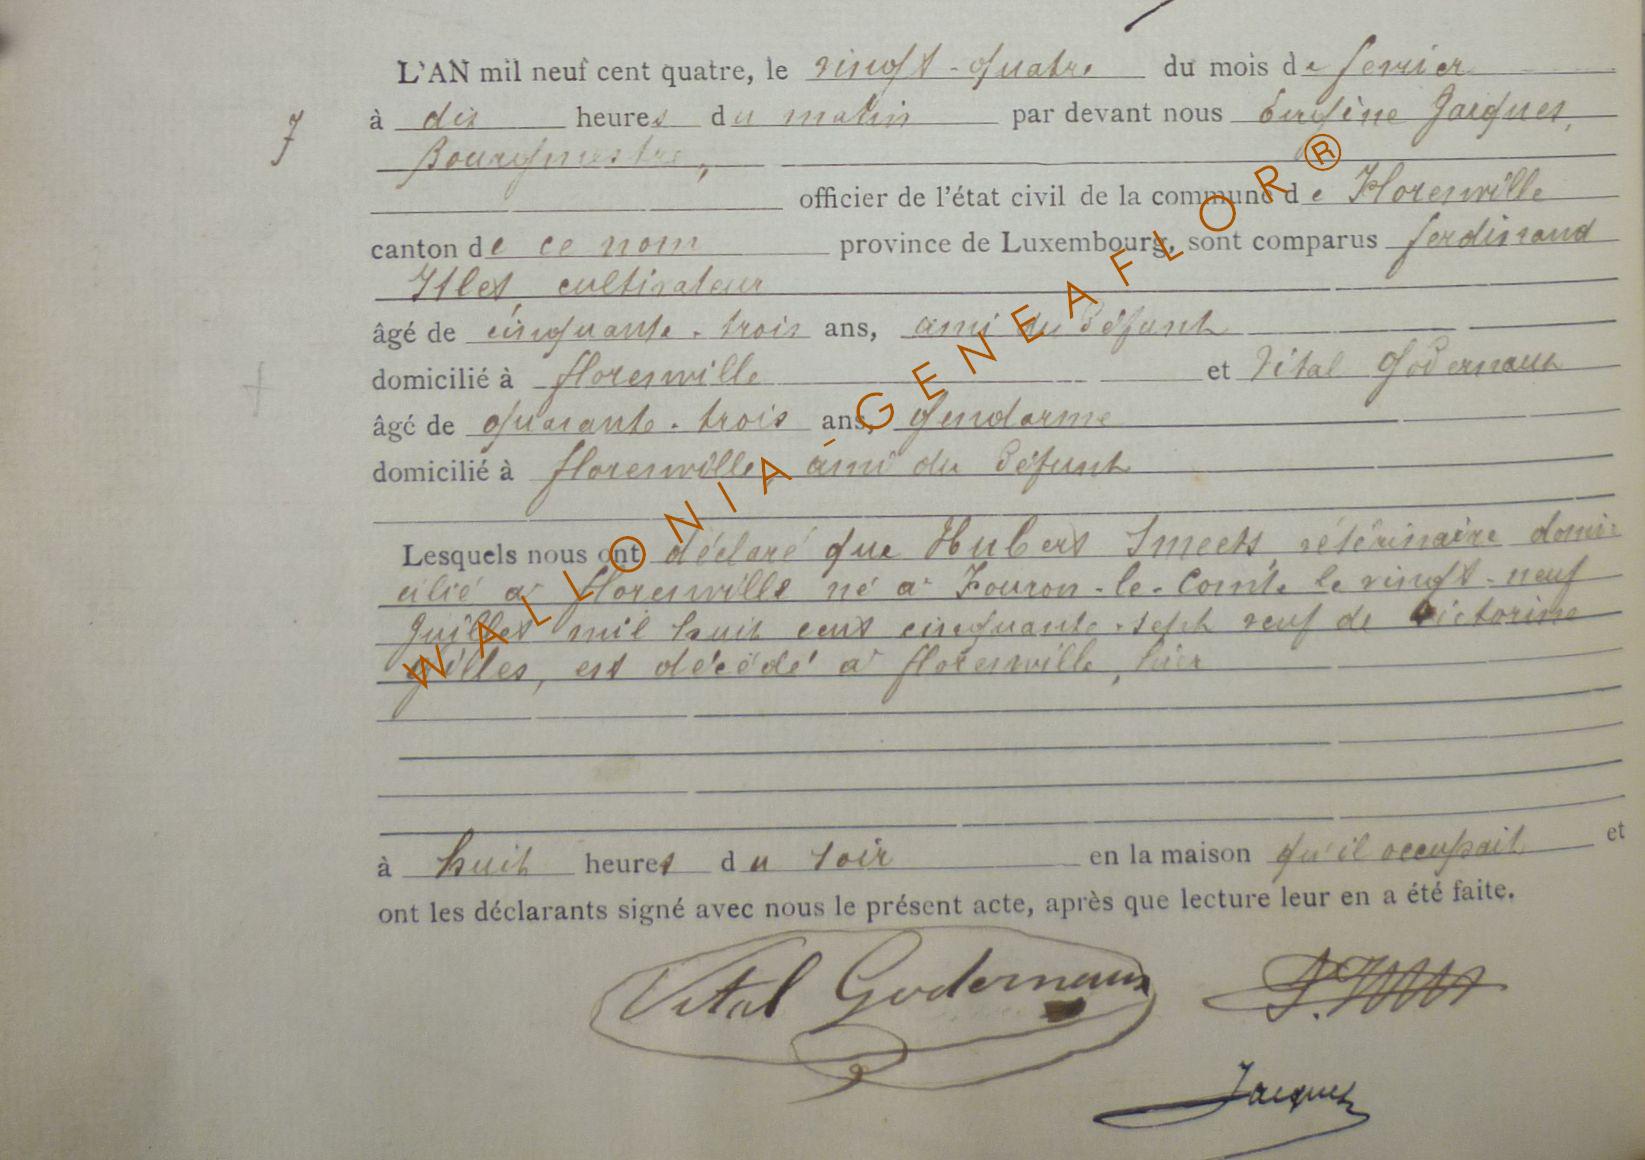 L'AN mil neuf cent quatre, le vingt-quatre du mois de fevrier
7 à dix heures du matin par devant nous Eugène Jacques,
Bourgmestre,
officier de l'état civil de la commune de Florenville
canton de ce nom province de Luxembourg, sont comparus ferdinand
cultivateur
âgé de cinquante-trois ans, ami du défunt
domicilié à florenville et Vital Godernaux
âgé de quarante-trois ans, gendarme
domicilié à florenville, ami du défunt
Lesquels nous ont déclaré que Hubert Smeets, vétérinaire domi-
cilié à florenville né à Fouron-le-Comte le vingt-neuf
Juillet mil huit cent cinquante-sept veuf de Victorine
Gilles, est décédé à florenville, hier
à huit heures du soir en la maison qu'il occupait et
ont les déclarants signé avec nous le présent acte, après que lecture leur en a été faite.
Vital Godernaux
Jacques
WALLONIA-GENEAFLOR®